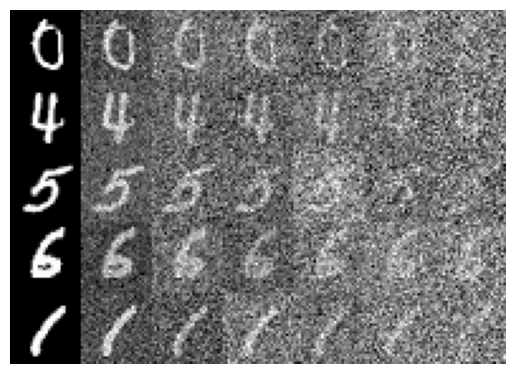 0 0 0 0 0 0 0
4 4 4 4 4 4 4
5 5 5 5 5 5
6 6 6 6 6 6 6
1 1 1 1 1 1 1